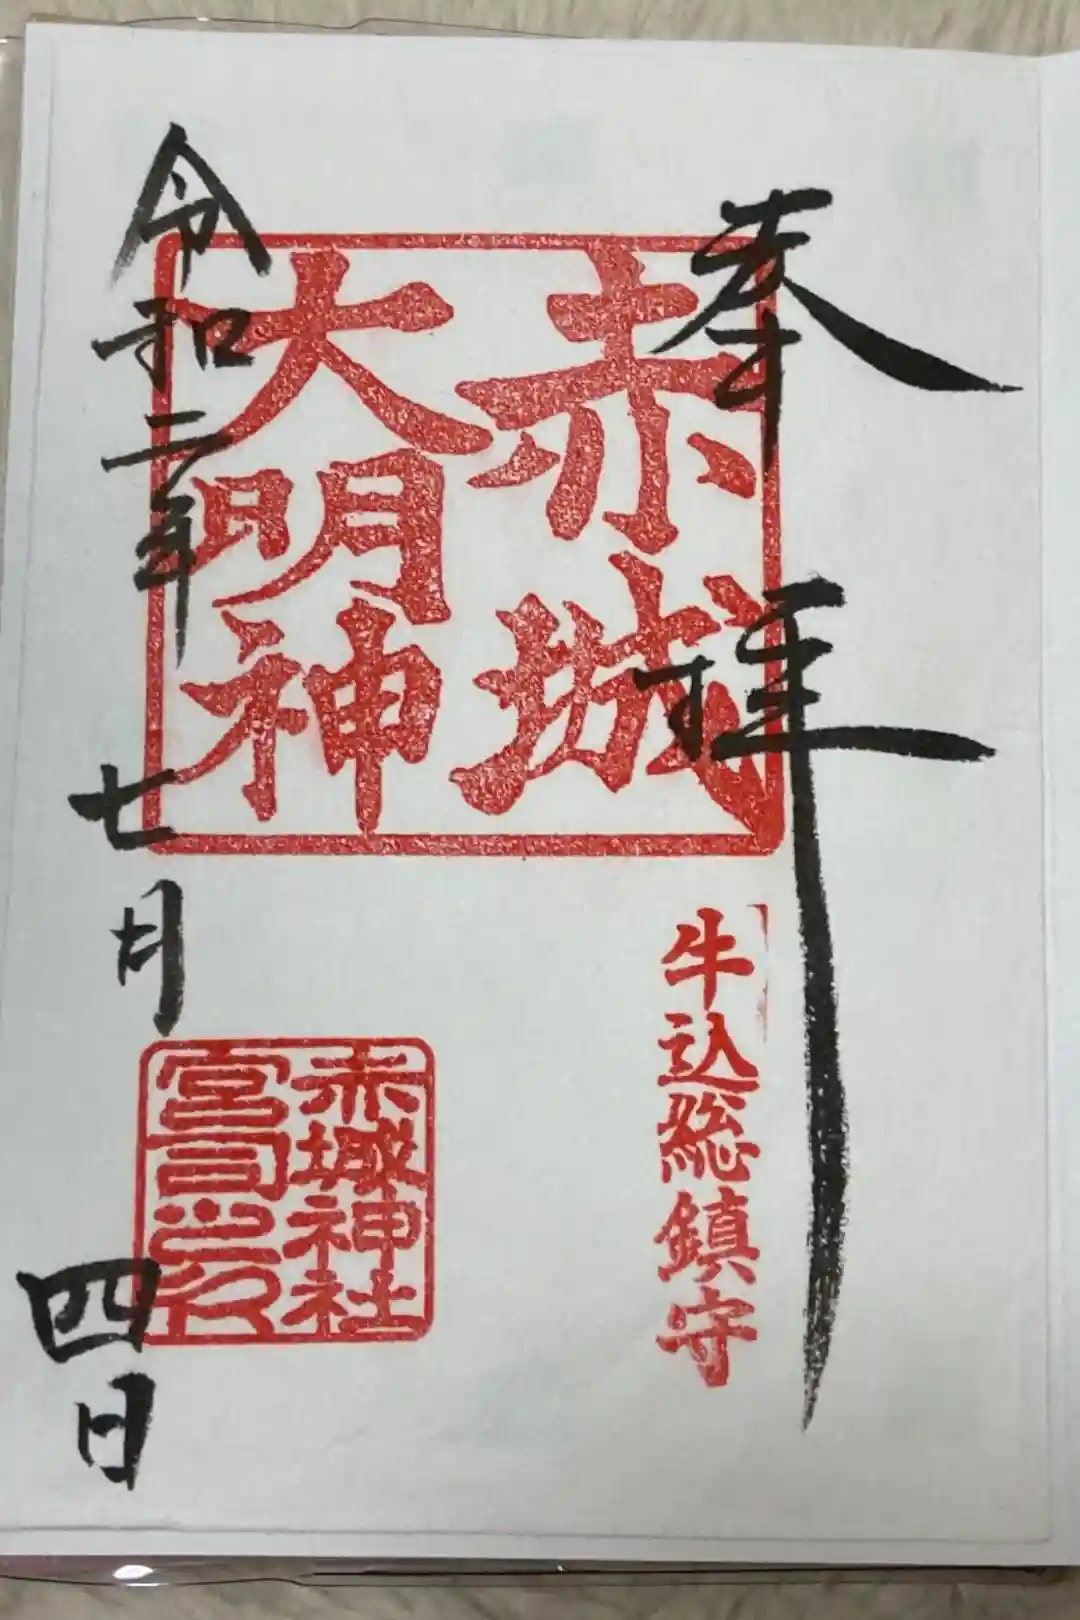 奉拝
牛込総鎮守
赤城
大明神
赤城神社
宮司之印
令和二年七月四日